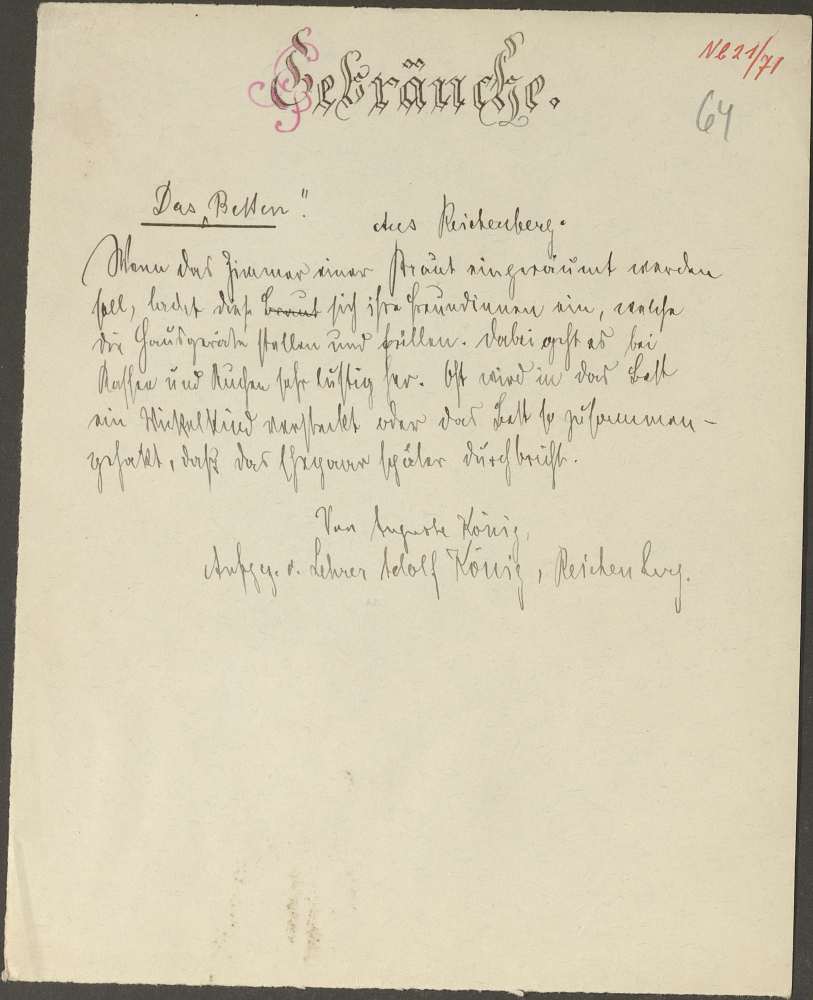 Gebräuche.
NB 21/71
64
Das „Betten". Aus Reichenberg.
Wenn das Zimmer einer Braut eingeräumt werden
soll, ladet diese Braut sich ihre Freundinnen ein, welche
die Hausgeräte stellen und füllen. Dabei geht es bei
Kaffee und Kuchen sehr lustig her. Oft wird in das Bett
ein Wickelkind versteckt oder das Bett so zusammen-
gehakt, daß das Ehepaar später durchbricht.
Von Auguste König,
Aufgez. v. Lehrer Adolf König, Reichenberg.